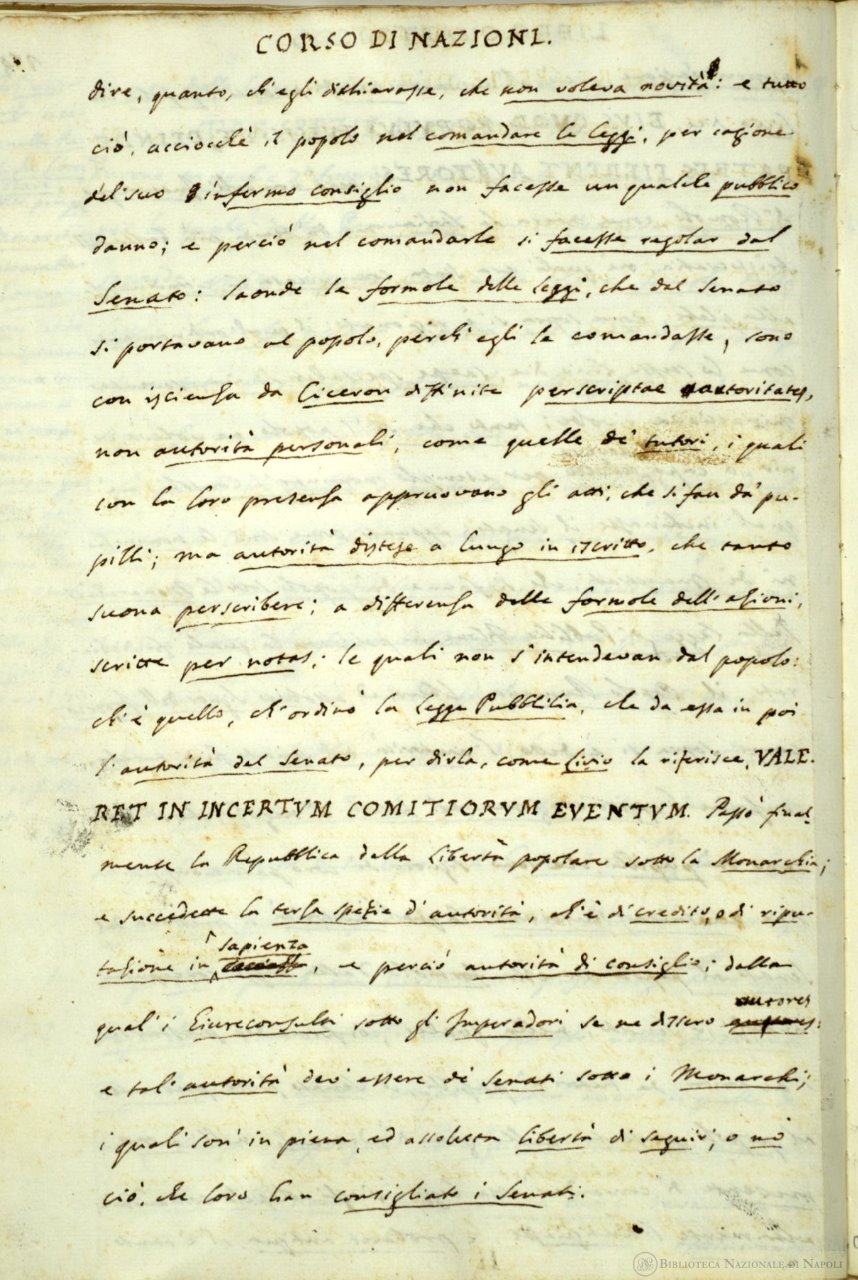 CORSO DI NAZIONI.
dire, quanto, ch'egli dichiarasse, che non voleva novità: e tutto
ciò, acciocchè il popolo nel comandare le leggi, per cagione
del suo infermo consiglio non facesse un qualche pubblico
danno; e perciò nel comandarle si facesse regolar dal
Senato: laonde le formole delle leggi, che dal Senato
si portavano al popolo, perch'egli le comandasse, sono
con iscienza da Ciceron diffinite perscriptae autoritates,
non autorità personali, come quelle de' tutori, i quali
con la loro presenza appruovano gli atti, che si fan da' pu-
pilli; ma autorità distese a lungo in iscritto, che tanto
suona perscribere; a differenza delle formole dell'azioni,
scritte per notas; le quali non s'intendevan dal popolo:
ch'è quello, ch'ordinò la Legge Pubblilia, che da essa in poi
l'autorità del Senato, per dirla, come Livio la riferisce, VALE-
RET IN INCERTVM COMITIORVM EVENTVM. Passò final-
mente la Repubblica dalla libertà popolare sotto la Monarchia;
e succedette la terza spezie d'autorità, ch'è di credito, o di ripu-
tazione in sapienza, e perciò autorità di consiglio; dalla
qual' i Giureconsulti sotto gl'Imperadori se ne dissero autores:
e tal' autorità dev' essere de' Senati sotto i Monarchi;
i quali son' in piena, ed assoluta libertà di seguir', o nò
ciò, che loro han consigliato i Senati.
BIBLIOTECA NAZIONALE DI NAPOLI